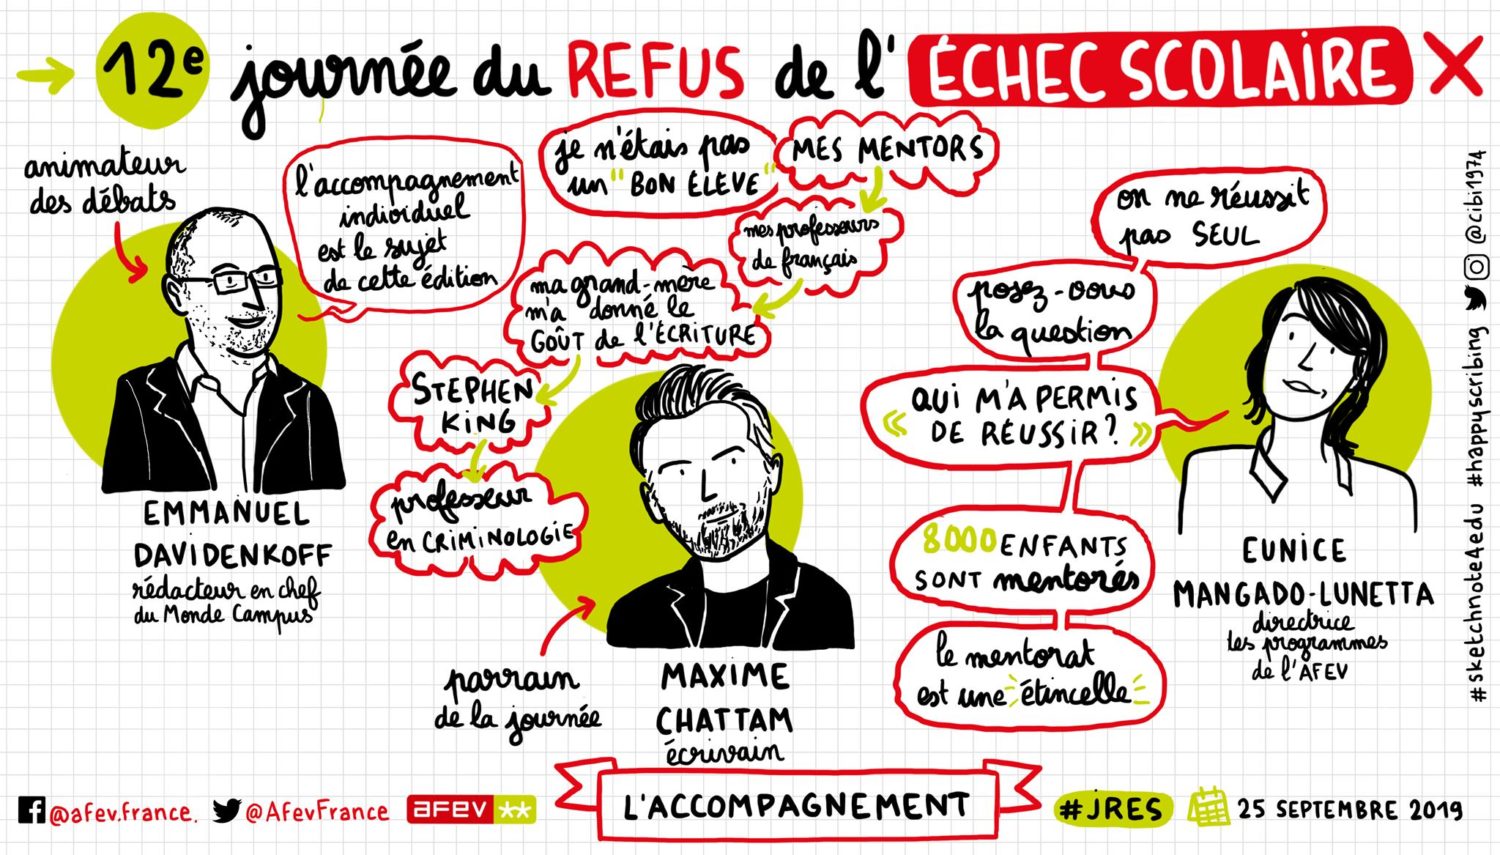 12e journée du REFUS de l'ÉCHEC SCOLAIRE
animateur
des débats
l'accompagnement
individuel
est le sujet
de cette édition
EMMANUEL
DAVIDENKOFF
rédacteur en chef
du Monde Campus
je n'étais pas
un "BON ÉLÈVE"
MES MENTORS
mes professeurs
de français
ma grand-mère
m'a donné le
GOÛT de l'ÉCRITURE
STEPHEN
KING
professeur
en CRIMINOLOGIE
parrain
de la journée
MAXIME
CHATTAM
écrivain
on ne réussit
pas SEUL
posez-vous
la question
« QUI M'A PERMIS
DE RÉUSSIR? »
8000 ENFANTS
SONT mentorés
le mentorat
est une étincelle
EUNICE
MANGADO-LUNETTA
directrice
des programmes
de l'AFEV
#sketchnote4edu #happyscribing @cibi1974
@afev.france. @AfevFrance afev**
L'ACCOMPAGNEMENT
#JRES 25 SEPTEMBRE 2019